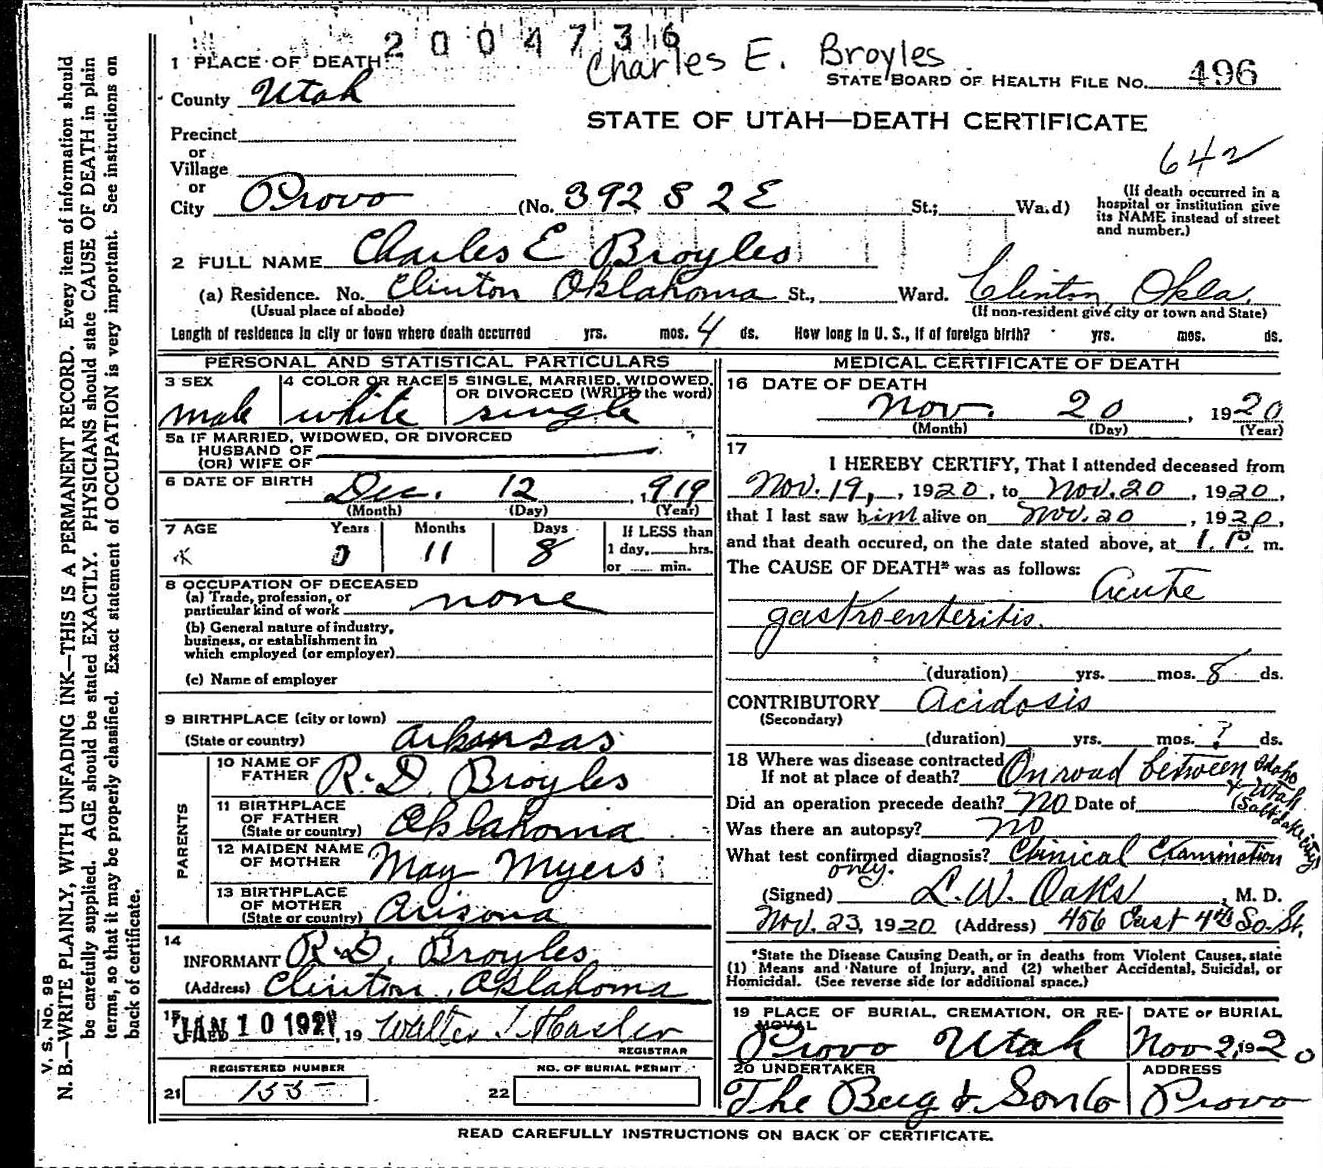 20047316
Charles E. Broyles
1 PLACE OF DEATH
STATE BOARD OF HEALTH FILE NO. 496
County Utah
STATE OF UTAH—DEATH CERTIFICATE
Precinct
or
Village
642
or
City Provo (No. 392 S 2 E St.; Ward)
(If death occurred in a hospital or institution give its NAME instead of street and number.)
2 FULL NAME Charles E Broyles
(a) Residence. No. Clinton Oklahoma St., Ward. Clinton, Okla.
(Usual place of abode) (If non-resident give city or town and State)
Length of residence in city or town where death occurred yrs. mos. 4 ds. How long in U. S., if of foreign birth? yrs. mos. ds.
PERSONAL AND STATISTICAL PARTICULARS
3 SEX 4 COLOR OR RACE 5 SINGLE, MARRIED, WIDOWED, OR DIVORCED (WRITE the word)
male white single
5a IF MARRIED, WIDOWED, OR DIVORCED
HUSBAND OF
(OR) WIFE OF
6 DATE OF BIRTH Dec. 12, 919
(Month) (Day) (Year)
7 AGE Years Months Days If LESS than
0 11 8 1 day, hrs.
or min.
8 OCCUPATION OF DECEASED
(a) Trade, profession, or
particular kind of work none
(b) General nature of industry,
business, or establishment in
which employed (or employer)
(c) Name of employer
9 BIRTHPLACE (city or town)
(State or country) Arkansas
PARENTS
10 NAME OF FATHER R. D. Broyles
11 BIRTHPLACE OF FATHER (State or country) Oklahoma
12 MAIDEN NAME OF MOTHER May Myers
13 BIRTHPLACE OF MOTHER (State or country) Arisona
14
INFORMANT R. D. Broyles
(Address) Clinton, Oklahoma
15 FILED JAN 10 1921, 19 Walter T Hasler
REGISTRAR
REGISTERED NUMBER NO. OF BURIAL PERMIT
21 155 22
MEDICAL CERTIFICATE OF DEATH
16 DATE OF DEATH
Nov. 20, 1920
(Month) (Day) (Year)
17
I HEREBY CERTIFY, That I attended deceased from
Nov. 19, , 1920, to Nov. 20, 1920,
that I last saw him alive on Nov. 20, 1920,
and that death occured, on the date stated above, at 1. P. m.
The CAUSE OF DEATH* was as follows: Acute
gastroenteritis.
(duration) yrs. mos. 8 ds.
CONTRIBUTORY Acidosis
(Secondary)
(duration) yrs. mos. ? ds.
18 Where was disease contracted
If not at place of death? On road between Idaho
& Utah
(Salt Lake City)
Did an operation precede death? No Date of
Was there an autopsy? no
What test confirmed diagnosis? Clinical Examination
only.
(Signed) L. W. Oaks, M. D.
Nov. 23, 1920 (Address) 456 East 4th So. St.
*State the Disease Causing Death, or in deaths from Violent Causes, state
(1) Means and Nature of Injury, and (2) whether Accidental, Suicidal, or
Homicidal. (See reverse side for additional space.)
19 PLACE OF BURIAL, CREMATION, OR REMOVAL DATE OF BURIAL
Provo Utah Nov 2, 1920
20 UNDERTAKER ADDRESS
The Berg & Son Co Provo
READ CAREFULLY INSTRUCTIONS ON BACK OF CERTIFICATE.
V. S. No. 98
N. B.—WRITE PLAINLY, WITH UNFADING INK—THIS IS A PERMANENT RECORD. Every item of information should
be carefully supplied. AGE should be stated EXACTLY. PHYSICIANS should state CAUSE OF DEATH in plain
terms, so that it may be properly classified. Exact statement of OCCUPATION is very important. See instructions on
back of certificate.